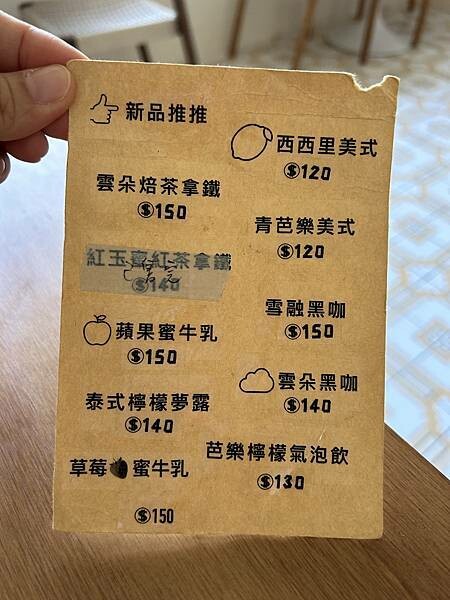 新品推推
雲朵焙茶拿鐵
$150
紅玉紅茶拿鐵
已售完
$140
蘋果蜜牛乳
$150
泰式檸檬夢露
$140
草莓蜜牛乳
$150
西西里美式
$120
青芭樂美式
$120
雪融黑咖
$150
雲朵黑咖
$140
芭樂檸檬氣泡飲
$130